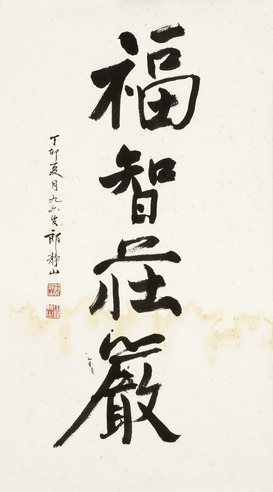 福智莊嚴
丁卯夏月九六叟郎靜山